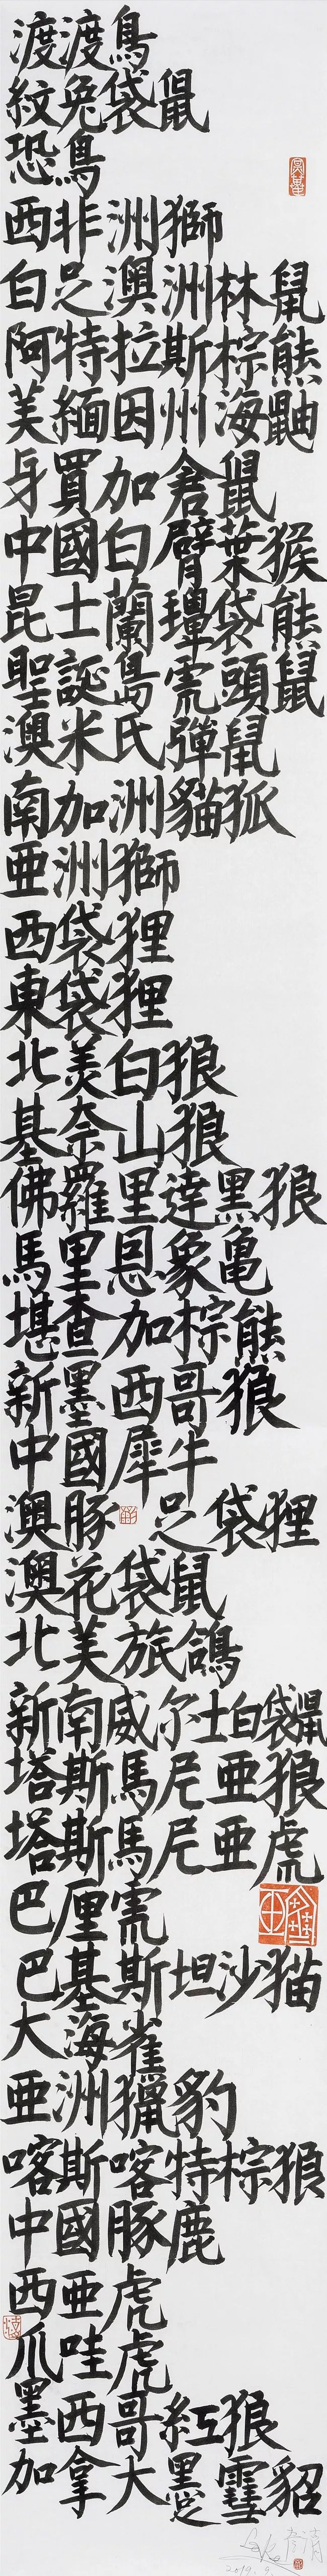 渡渡鳥
紋兔袋鼠
恐鳥
西非洲獅
白足澳洲林鼠
阿特拉斯棕熊
美緬因州海鼬
身買加倉鼠
中國白臂葉猴
昆士蘭環袋熊
聖誕島虎頭鼠
澳米氏彈鼠
南加洲貓狐
亜洲獅
西袋狸
東袋狸
北美白狼
基奈山狼
佛羅里達黑狼
馬里恩象亀
堪查加棕熊
新墨西哥狼
中國犀牛
澳豚足袋狸
澳花袋鼠
北美旅鴿
新南威尔士白袋鼠
塔斯馬尼亜狼
塔斯馬尼亜虎
巴厘虎
巴基斯坦沙猫
大海雀
亜洲獵豹
喀斯喀特棕狼
中國豚鹿
西亜虎
爪哇虎
墨西哥紅狼
加拿大雪貂
2019.